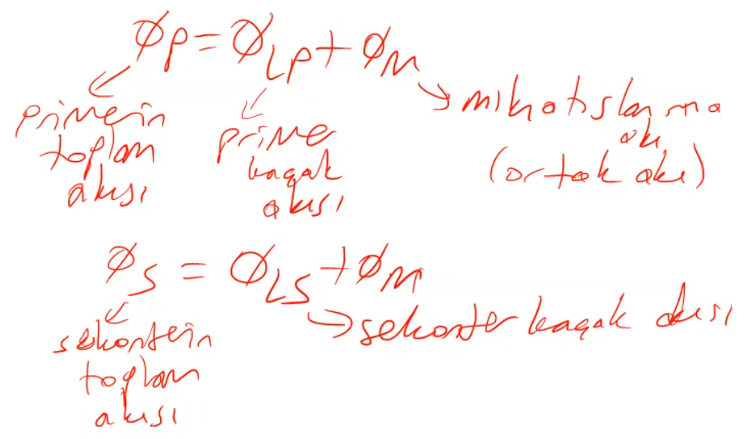 φP = φLP + φM
primerin
toplam
akısı
primer
kaçak
akısı
mıknatıslanma
akı
(ortak akı)
φS = φLS + φM
sekonderin
toplam
akısı
sekonder kaçak akısı